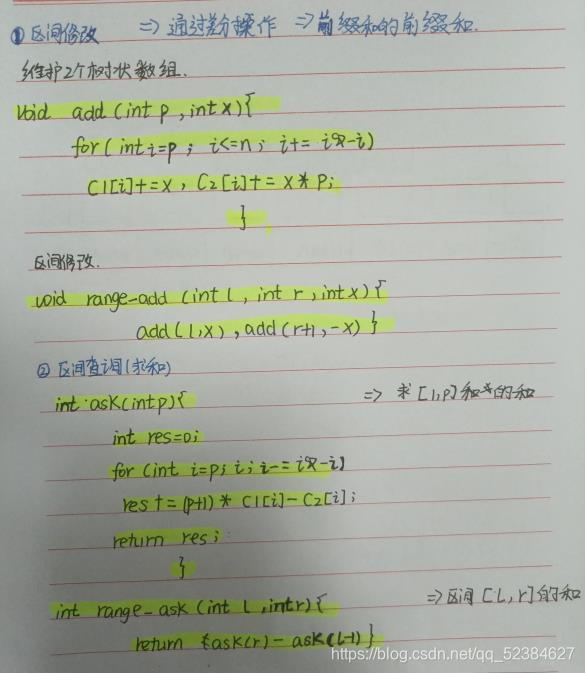 ① 区间修改 => 通过差分操作 => 前缀和的前缀和.
维护2个树状数组.
void add (int p, int x){
for(int i=p; i<=n; i+= i&-i)
C1[i]+=x, C2[i]+= x*p;
}
区间修改.
void range-add (int l, int r, int x){
add(l,x), add(r+1,-x) }
② 区间查询(求和)
int ask(int p){ => 求[1,p]和的和
int res=0;
for (int i=p; i; i-= i&-i)
res += (p+1) * C1[i]-C2[i];
return res;
}
int range_ask (int l, int r){ => 区间[l,r]的和
return ask(r)-ask(l-1)}
https://blog.csdn.net/qq_52384627